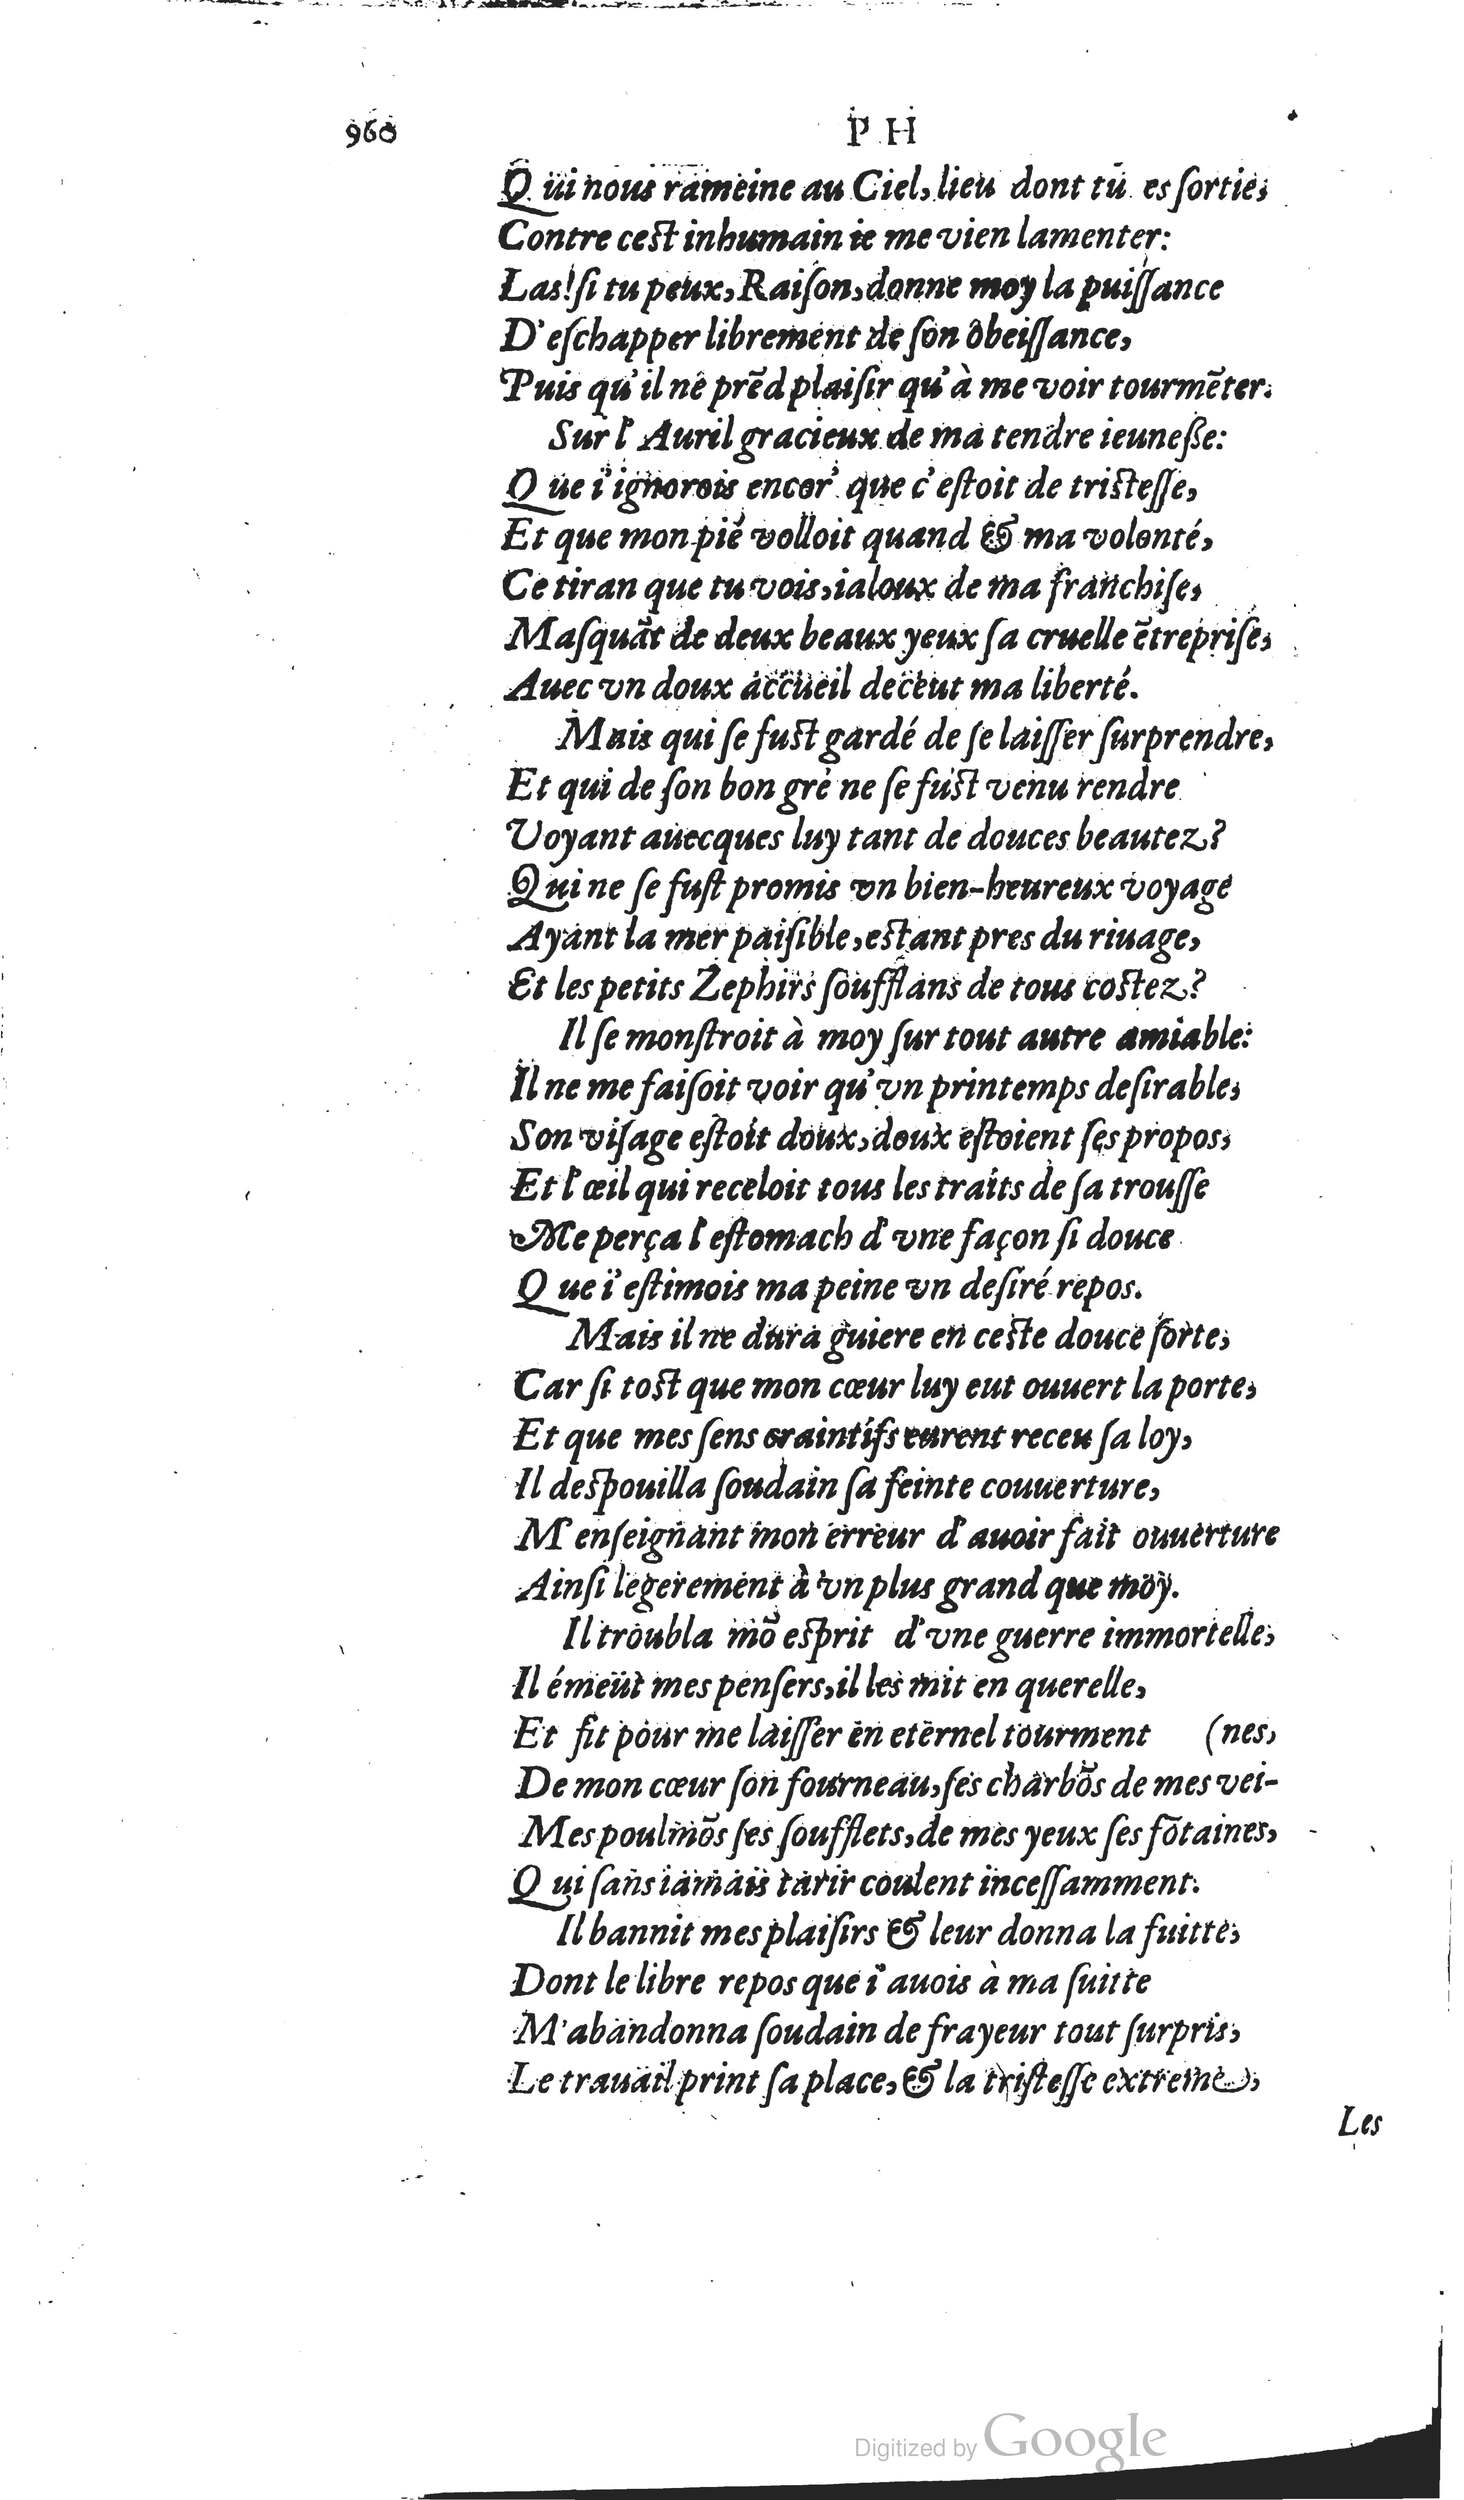 960
PH
Qui nous rameine au Ciel, lieu dont tu es ſortie,
Contre ceſt inhumain ie me vien lamenter:
Las! ſi tu peux, Raiſon, donne moy la puiſſance
D'eſchapper librement de ſon obeiſſance,
Puis qu'il ne prẽd plaiſir qu'à me voir tourmẽter.
Sur l'Auril gracieux de ma tendre ieuneſſe:
Que i'ignorois encor' que c'eſtoit de triſteſſe,
Et que mon pié volloit quand & ma volonté,
Ce tiran que tu vois, ialoux de ma franchiſe,
Maſquãt de deux beaux yeux ſa cruelle ẽtrepriſe,
Auec vn doux accueil deceut ma liberté.
Mais qui ſe fuſt gardé de ſe laiſſer ſurprendre,
Et qui de ſon bon gré ne ſe fuſt venu rendre
Voyant auecques luy tant de douces beautez?
Qui ne ſe fuſt promis vn bien-heureux voyage
Ayant la mer paiſible, eſtant pres du riuage,
Et les petits Zephirs ſoufflans de tous coſtez?
Il ſe monſtroit à moy ſur tout autre amiable:
Il ne me faiſoit voir qu'vn printemps deſirable,
Son viſage eſtoit doux, doux eſtoient ſes propos,
Et l'œil qui receloit tous les traits de ſa trouſſe
Me perça l'eſtomach d'vne façon ſi douce
Que i'eſtimois ma peine vn deſiré repos.
Mais il ne dura guiere en ceſte douce ſorte,
Car ſi toſt que mon cœur luy eut ouuert la porte,
Et que mes ſens craintifs eurent receu ſa loy,
Il deſpouilla ſoudain ſa feinte couuerture,
M'enſeignant mon erreur d'auoir fait ouuerture
Ainſi legerement à vn plus grand que moy.
Il troubla mõ eſprit d'vne guerre immortelle,
Il émeüt mes penſers, il les mit en querelle,
Et fit pour me laiſſer en eternel tourment (nes,
De mon cœur ſon fourneau, ſes charbõs de mes vei-
Mes poulmõs ſes ſoufflets, de mes yeux ſes fõtaines,
Qui ſans iamais tarir coulent inceſſamment.
Il bannit mes plaiſirs & leur donna la fuitte,
Dont le libre repos que i'auois à ma ſuitte
M'abandonna ſoudain de frayeur tout ſurpris,
Le trauail print ſa place, & la triſteſſe extreme,
Les
Digitized by Google